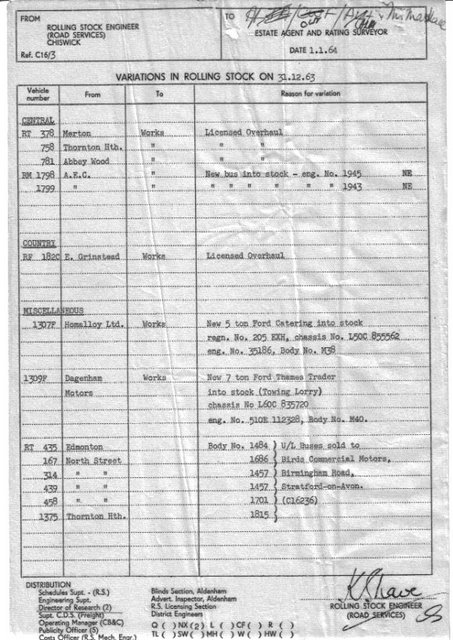 FROM
ROLLING STOCK ENGINEER
(ROAD SERVICES)
CHISWICK
Ref. C16/3
TO
ESTATE AGENT AND RATING SURVEYOR
DATE 1.1.64
VARIATIONS IN ROLLING STOCK ON 31.12.63
Vehicle number From To Reason for variation
CENTRAL
RT 378 Merton Works Licensed Overhaul
758 Thornton Hth. " " "
781 Abbey Wood " " "
RM 1798 A.E.C. " New bus into stock - eng. No. 1945 NE
1799 " " " " " " " " 1943 NE
COUNTRY
RF 182C E. Grinstead Works Licensed Overhaul
MISCELLANEOUS
1307F Homalloy Ltd. Works New 5 ton Ford Catering into stock
regn. No. 205 EXH, chassis No. L50C 855562
eng. No. 35186, Body No. M38
1309F Dagenham Works New 7 ton Ford Thames Trader
Motors into stock (Towing Lorry)
chassis No L60C 835720
eng. No. 510E 112328, Body No. M40.
RT 435 Edmonton Body No. 1484) U/L Buses sold to
167 North Street 1686) Birds Commercial Motors,
314 " " 1457) Birmingham Road,
439 " " 1457) Stratford-on-Avon.
458 " " 1701) (C16236)
1375 Thornton Hth. 1815)
DISTRIBUTION
Schedules Supt. - (R.S.)
Engineering Supt.
Director of Research (2)
Supt. C.D.S. (Freight)
Operating Manager (CB&C)
Publicity Officer (5)
Costs Officer (R.S. Mech. Engr.)
Blinds Section, Aldenham
Advert. Inspector, Aldenham
R.S. Licensing Section
District Engineers
Q ( ) NX(2) L ( ) CF( ) R ( )
TL ( ) SW( ) MH ( ) W ( ) HW ( )
ROLLING STOCK ENGINEER
(ROAD SERVICES)